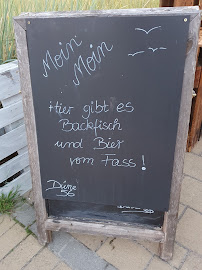 Moin
Moin
Hier gibt es
Backfisch
und Bier
vom Fass!
Düne
56